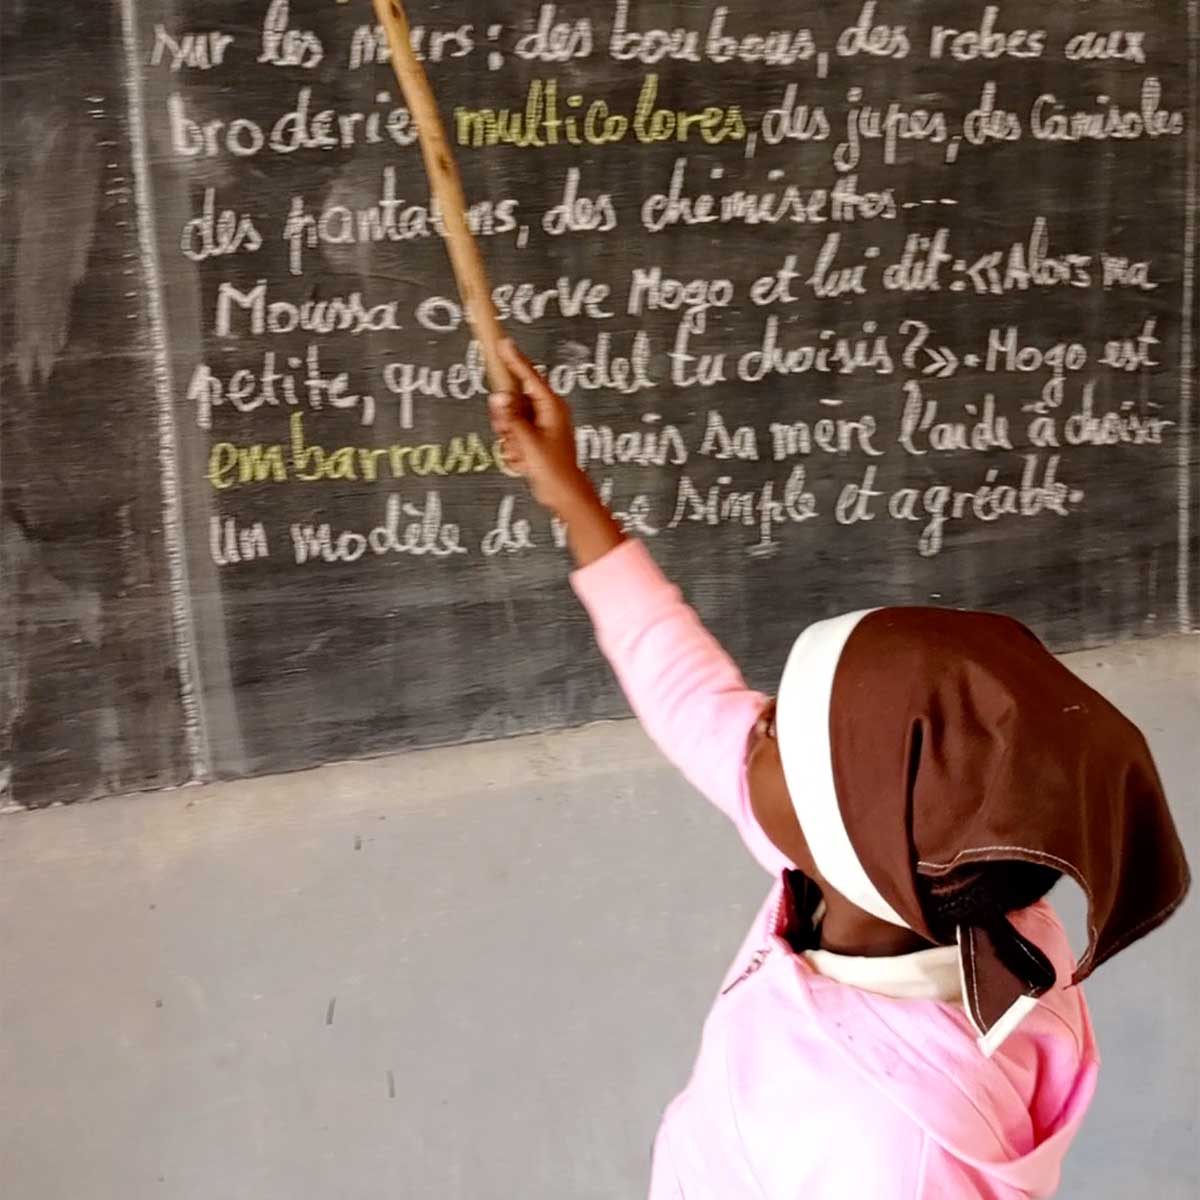 sur les murs : des boubous, des robes aux
broderie multicolores, des jupes, des Camisoles
des pantalons, des chemisettes...
Moussa observe Mogo et lui dit : «Alors ma
petite, quel model tu choisis ?». Mogo est
embarrassée mais sa mère l'aide à choisir
Un modèle de robe simple et agréable.